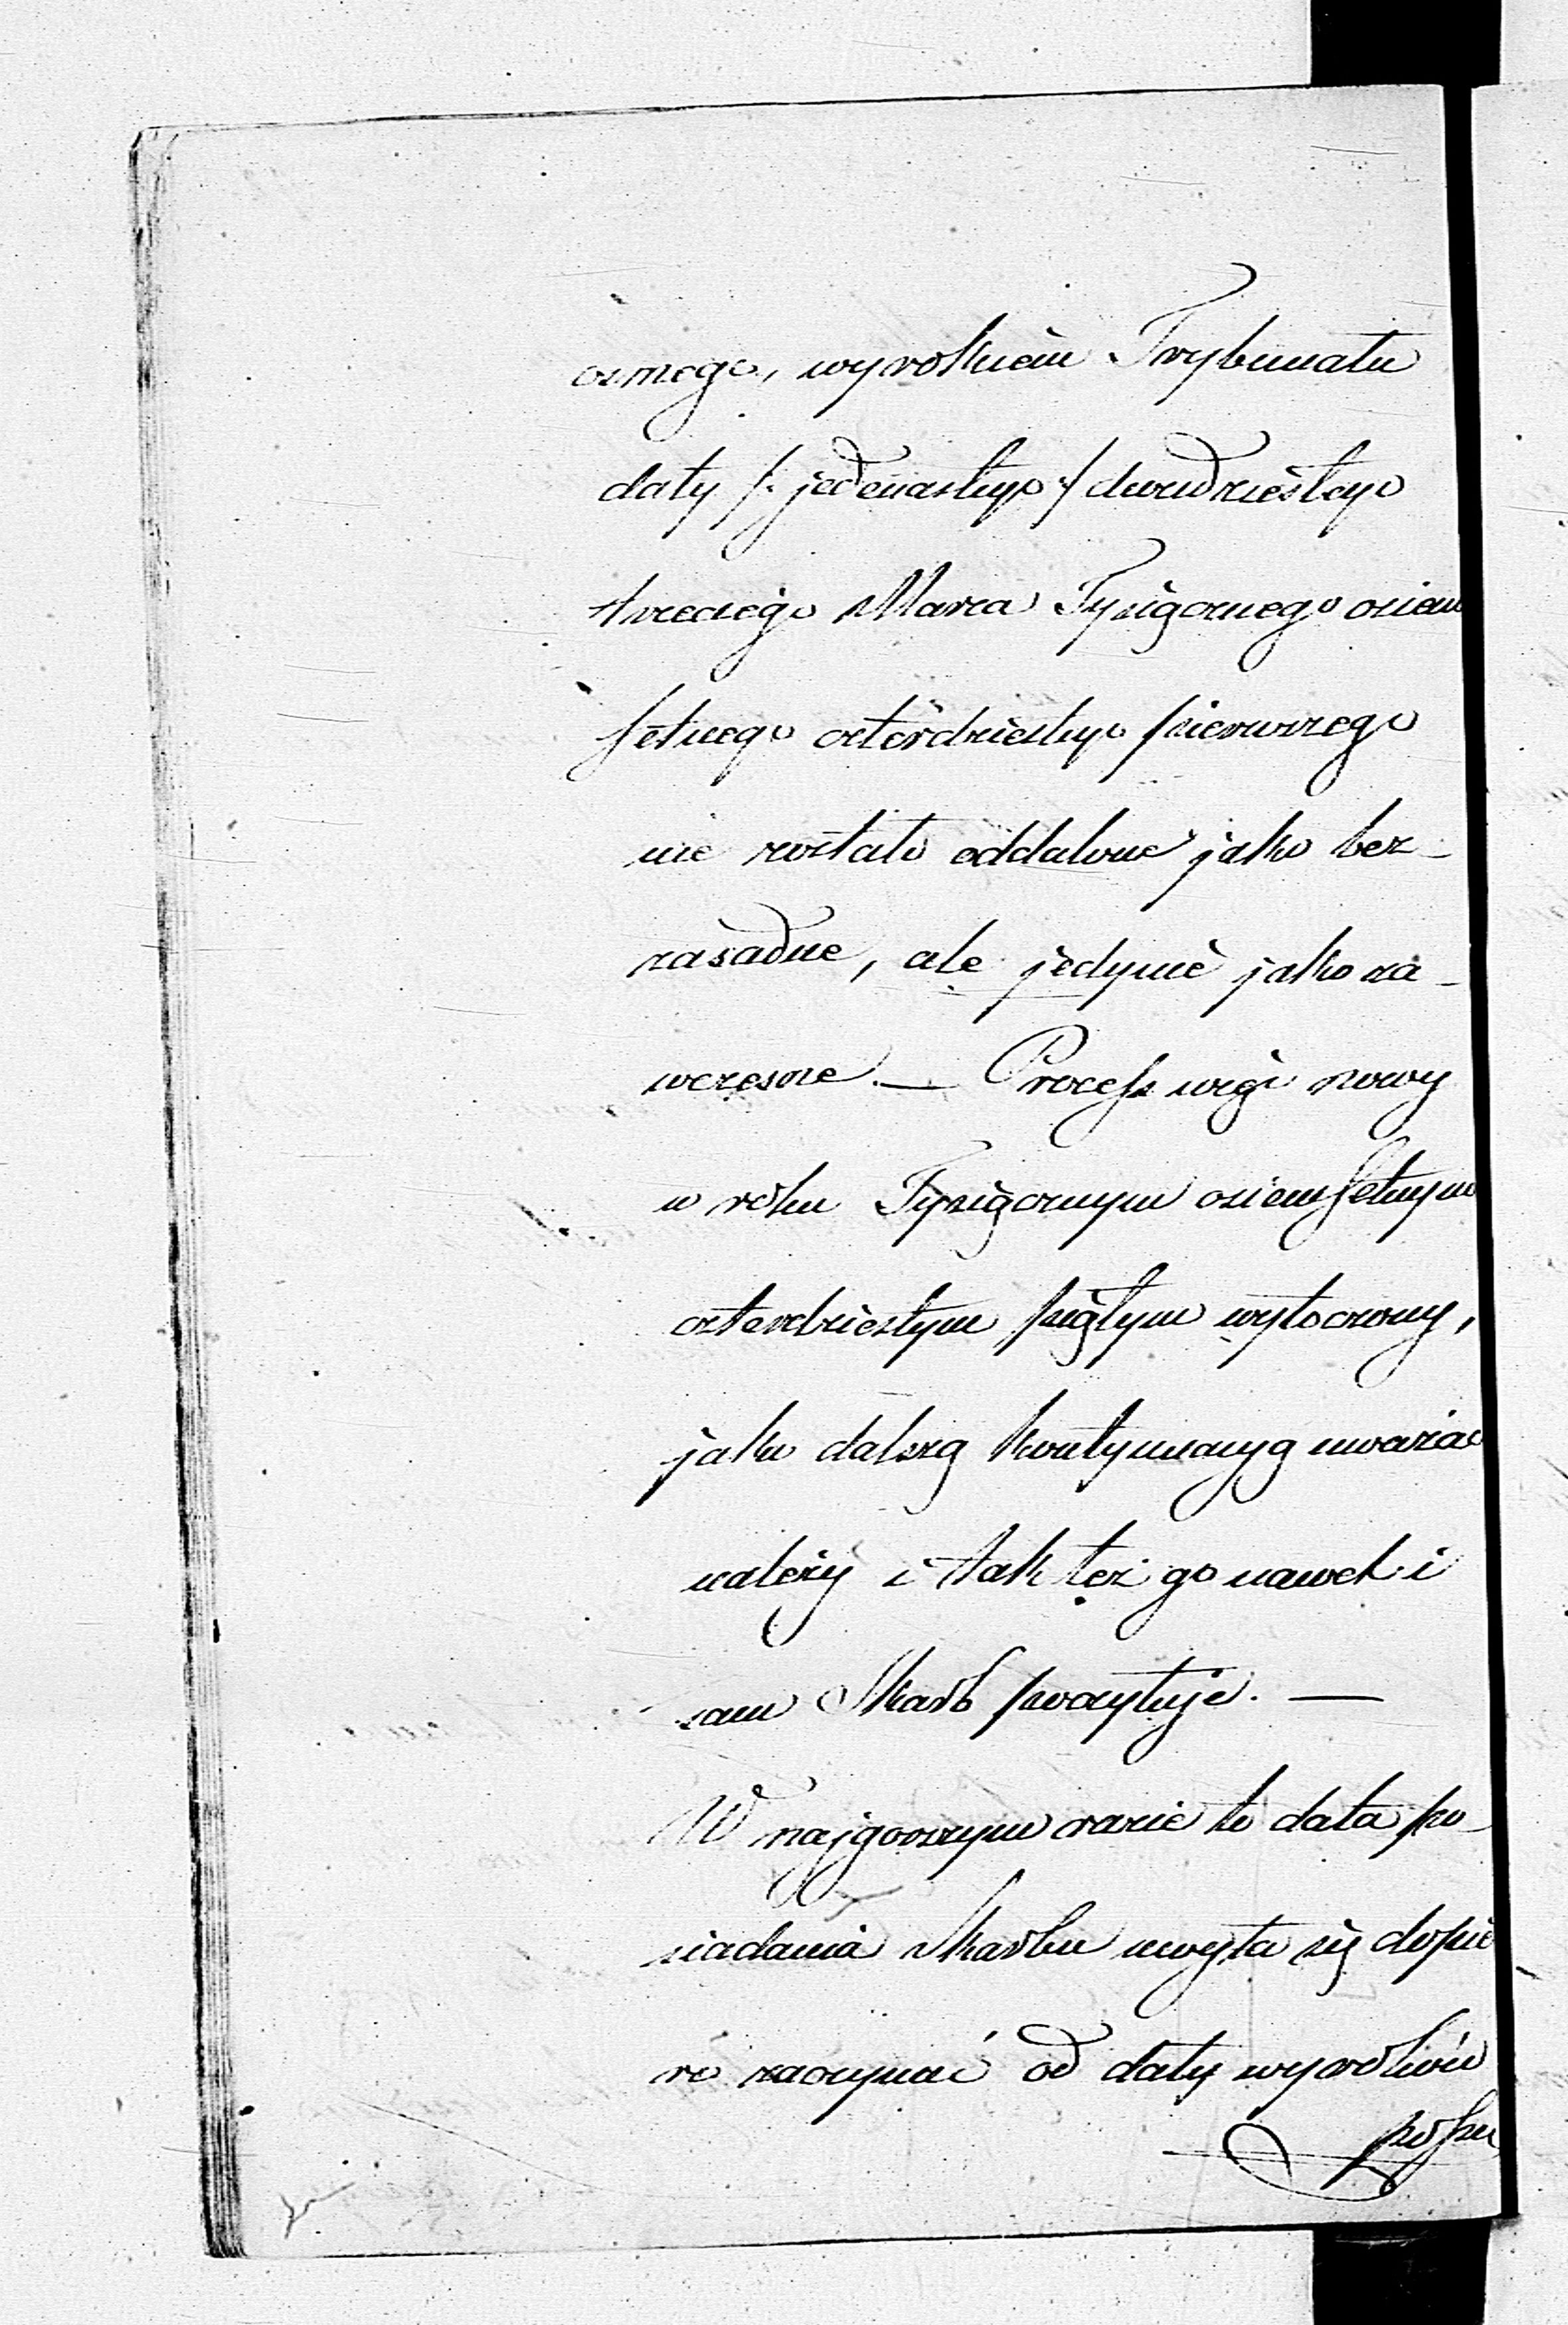 ósmego, wyrokiem Trybunału
daty /: jedenastego :/ dwudziestego
trzeciego Marca Tysiącznego ośiem
setnego czterdziestego pierwszego
nie zostało oddalone jako bez-
zasadne, ale jedynie jako za-
wczesne. — Process więc nowy
w roku Tysiącznym ośiemsetnym
czterdziestym piątym wytoczony,
jako dalszą kontynuacyą uważać
należy i tak też go nawet i
sam Skarb poczytuje. —
W najgorszym razie to data po-
siadania Skarbu
się dopie
ro zaczynać od daty wyroków